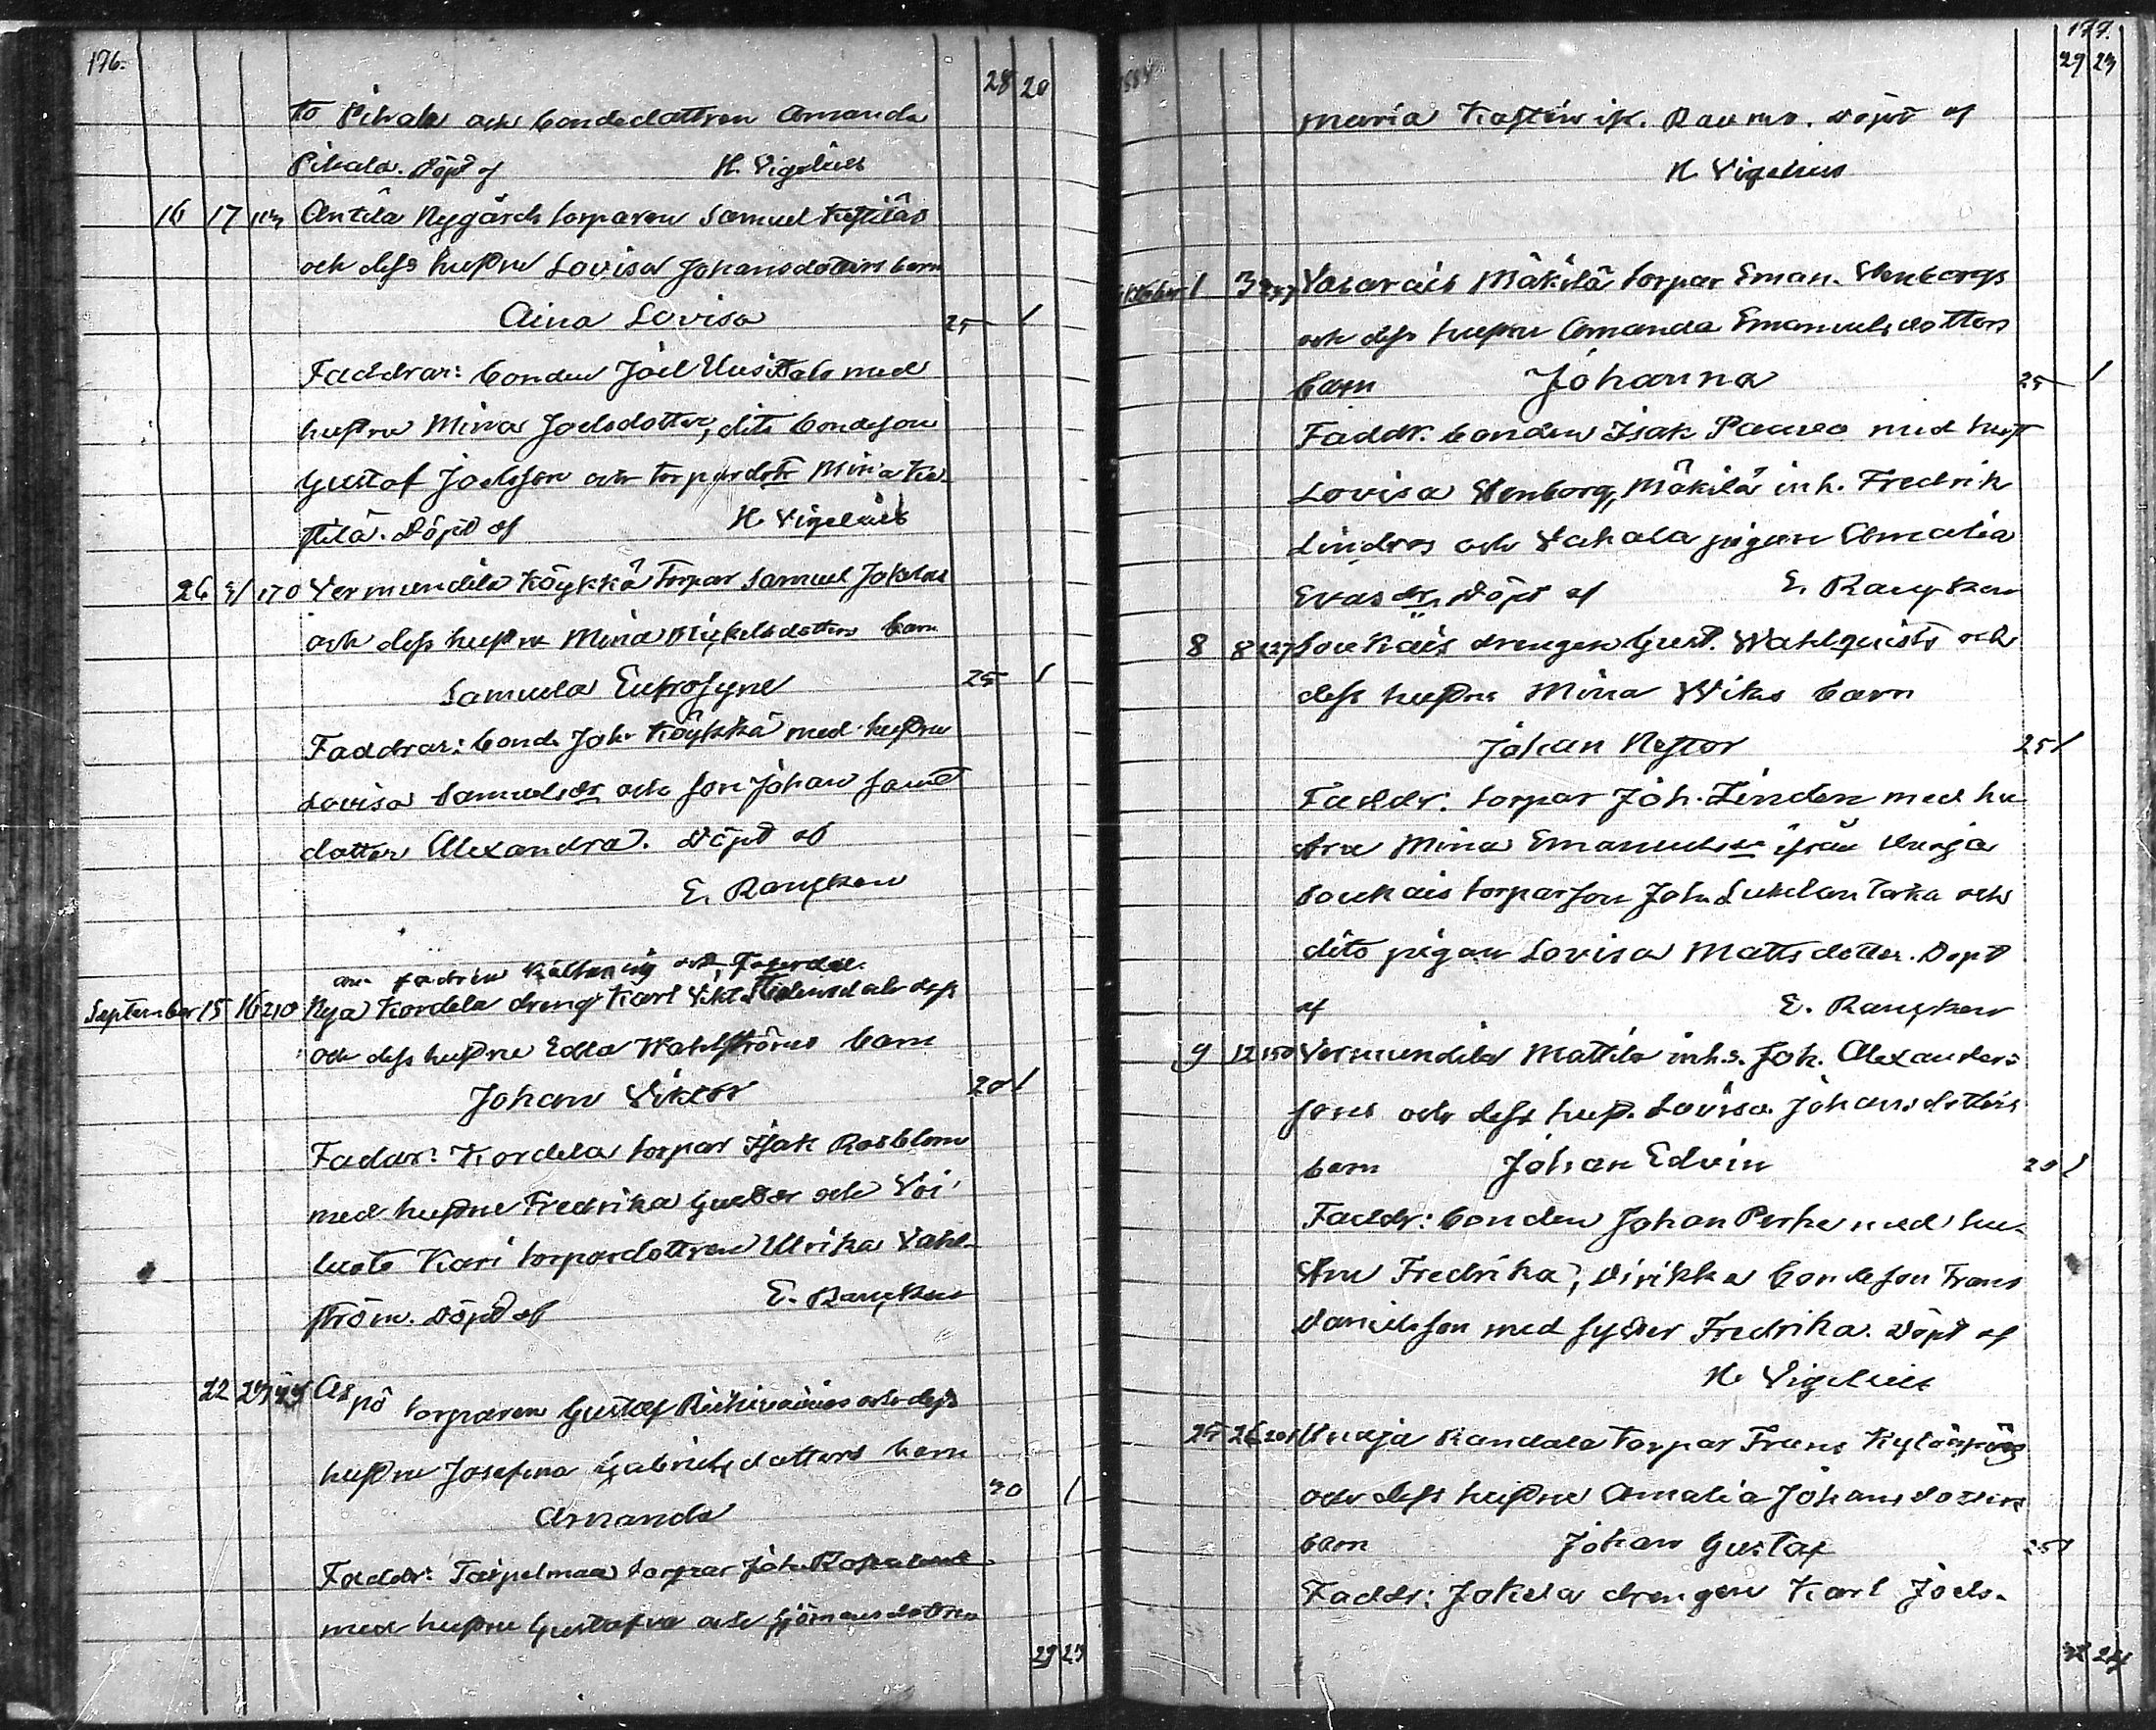 176.
28 20
to Pihala och bondedottren Amanda
Pihala. Döpt af H. Vigelius
16 17 Antila Nygårds torparen Samuel Kestiläs
och dess hustru Lovisa Johansdotters barn
Aina Lovisa 25 1
Faddrar: bonden Joel Uusitalo med
hustru Mina Joelsdotter, dito bondeson
Gustaf Joelsson och torpardotr Mina Ke-
stilä. Döpt af H. Vigelius
26 31 170 Vermundila Köykkä torpar Samuel Jokelas
och dess hustru Mina Mickelsdotters barn
Samuela Eufrosyne 25 1
Faddrar: bond. Joh. Köykkä med hustru
Lovisa Samuelsdr och son Johan samt
dotter Alexandra. Döpt af
E. Rancken
September 15 16 210 Nya Kordela dreng Karl Vikt.
och dess hustru Edla Wahlströms barn
Johan Viktor 20 1
Fadar: Kordela torpar Isak Rosblom
med hustru Fredrika Gustdr och Voi-
luoto Kari torpardottren Ulrika Vahl-
ström. Döpt af E. Rancken
22 23 Aspö torparen Gustaf och dess
hustru Josefina Gabrielsdotters barn
Amanda 30 1
Faddr: Taipelmaa torpar Joh.
med hustru Gustafva och sjömansdottren
29 23
177.
29 23
Maria ifr. Raumo. Döpt af
H Vigelius
Oktober 1 3 Vasarais Mäkilä torpar Eman. Stenborgs
och dess hustru Amanda Emanuelsdotters
barn Johanna 25 1
Faddr. bonden Isak Paavo med hust
Lovisa Stenborg, Mäkilä inh. Fredrik
Lindros och Vahala pigan Amalia
Evasdr. Döpt af E. Rancken
8 8 127 Soukais drengen Gust. Wahlquists och
dess hustru Mina Wiks barn
Johan Nestor 25 1
Faddr. torpar Joh. Linden med hu-
stru Mina Emanuelsdr ifrån Unaja
Soukais torparson Joh. och
dito pigan Lovisa Mattsdotter. Döpt
af E. Rancken
9 12 150 Vermundila Mattila inh.s. Joh. Alexanders-
sons och dess hust. Lovisa Johansdotters
barn Johan Edvin 20 1
Faddr: bonden Johan Perke med hu-
stru Fredrika, Virikka bondeson Frans
Danielsson med syster Fredrika. Döpt af
H. Vigelius
25 26 201 Unaja Randala torpar Frans
och dess hustru Amalia Johansdotters
barn Johan Gustaf 25 1
Faddr: Jokela drengen Karl Joels-